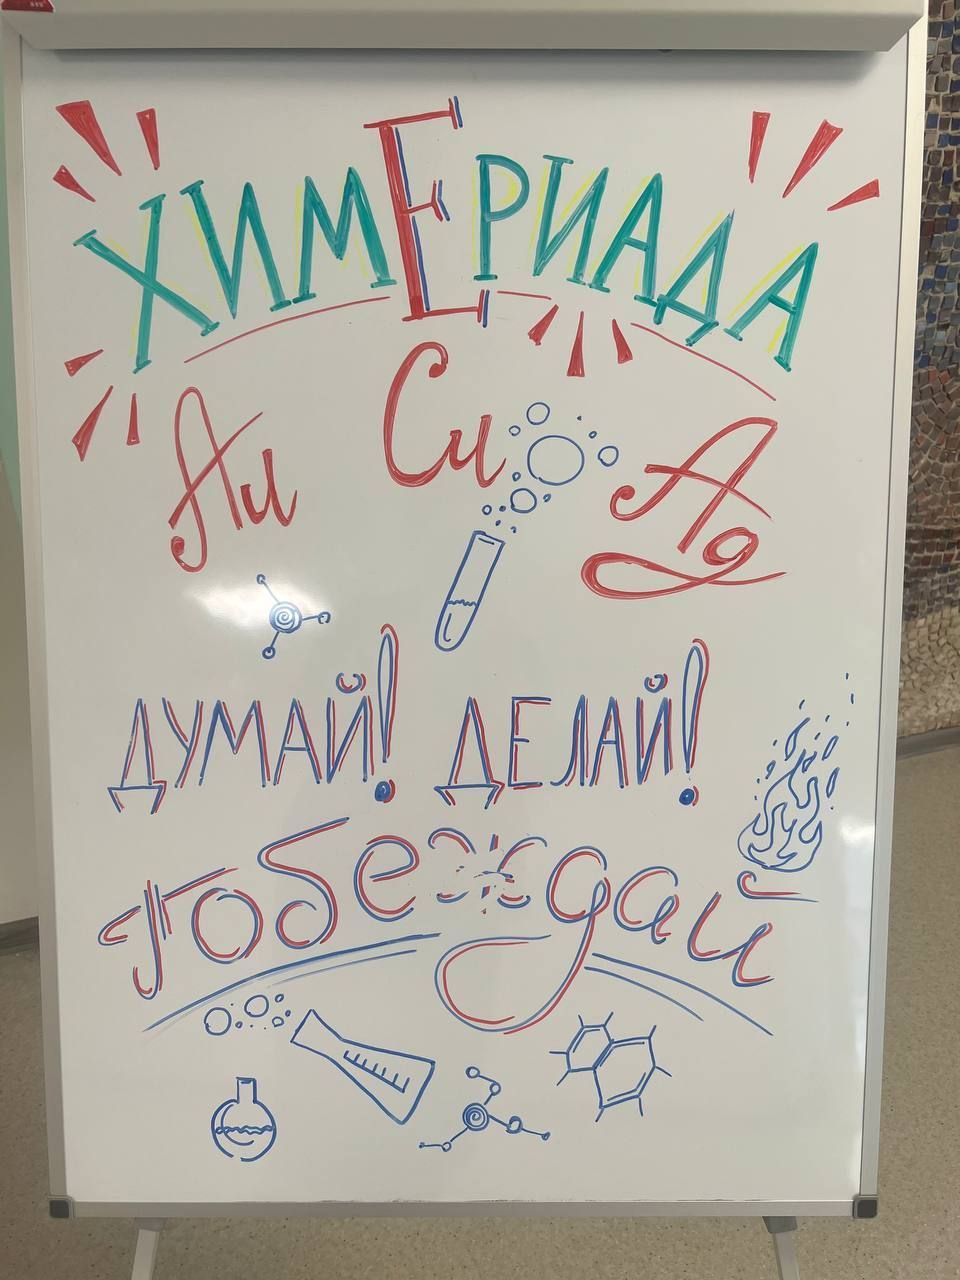 ХИМЕРИАДА
Аи Си Ад
ДУМАЙ! ДЕЛАЙ!
Побеждай